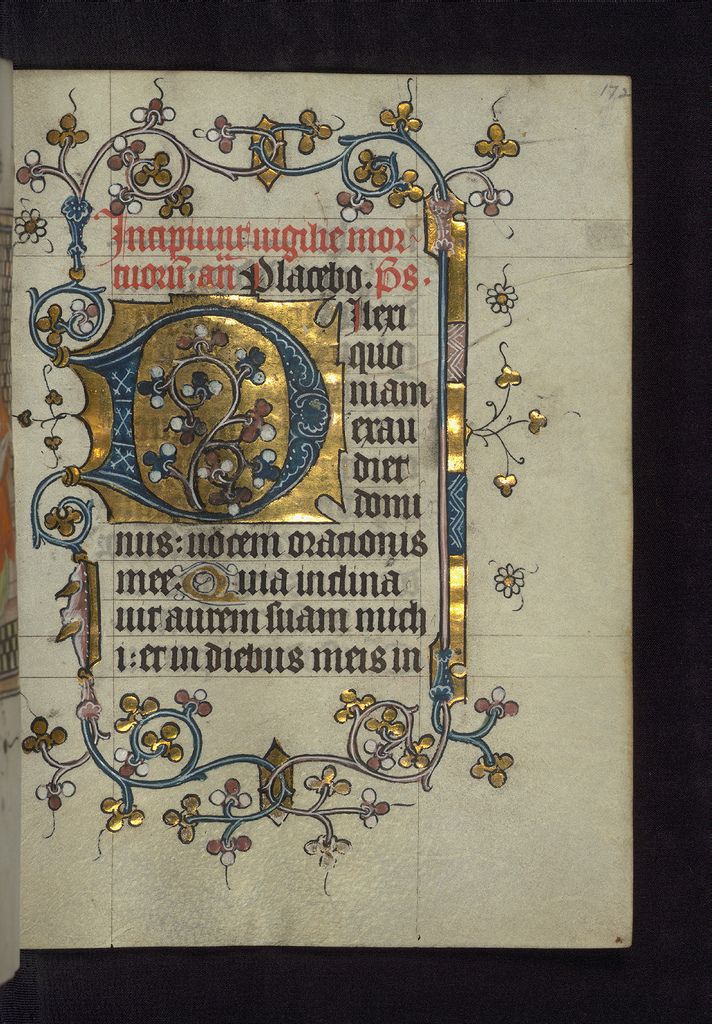 172
Incipiunt uigilie mor-
tuorū. añ Placebo. Ps.
Dilexi
quo
niam
exau
diet
domi
nus: uocem orationis
mee. Quia inclina
uit aurem suam mich
i: et in diebus meis in